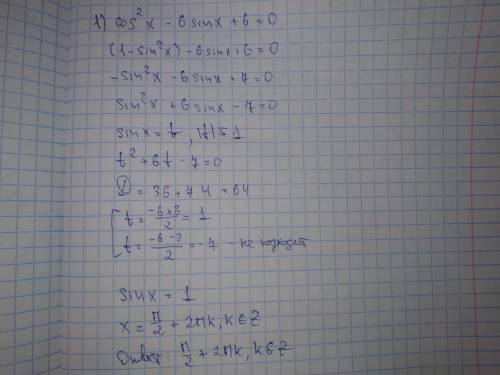 1) cos²x - 6 sinx + 6 = 0
(1 - sin²x) - 6 sinx + 6 = 0
-sin²x - 6 sinx + 7 = 0
sin²x + 6 sinx - 7 = 0
sinx = t, |t| ≤ 1
t² + 6t - 7 = 0
D = 36 + 7·4 = 64
[ t = (-6+8)/2 = 1
t = (-6-8)/2 = -7 - не подходит
sinx = 1
x = π/2 + 2πk, k∈Z
Ответ: π/2 + 2πk, k∈Z